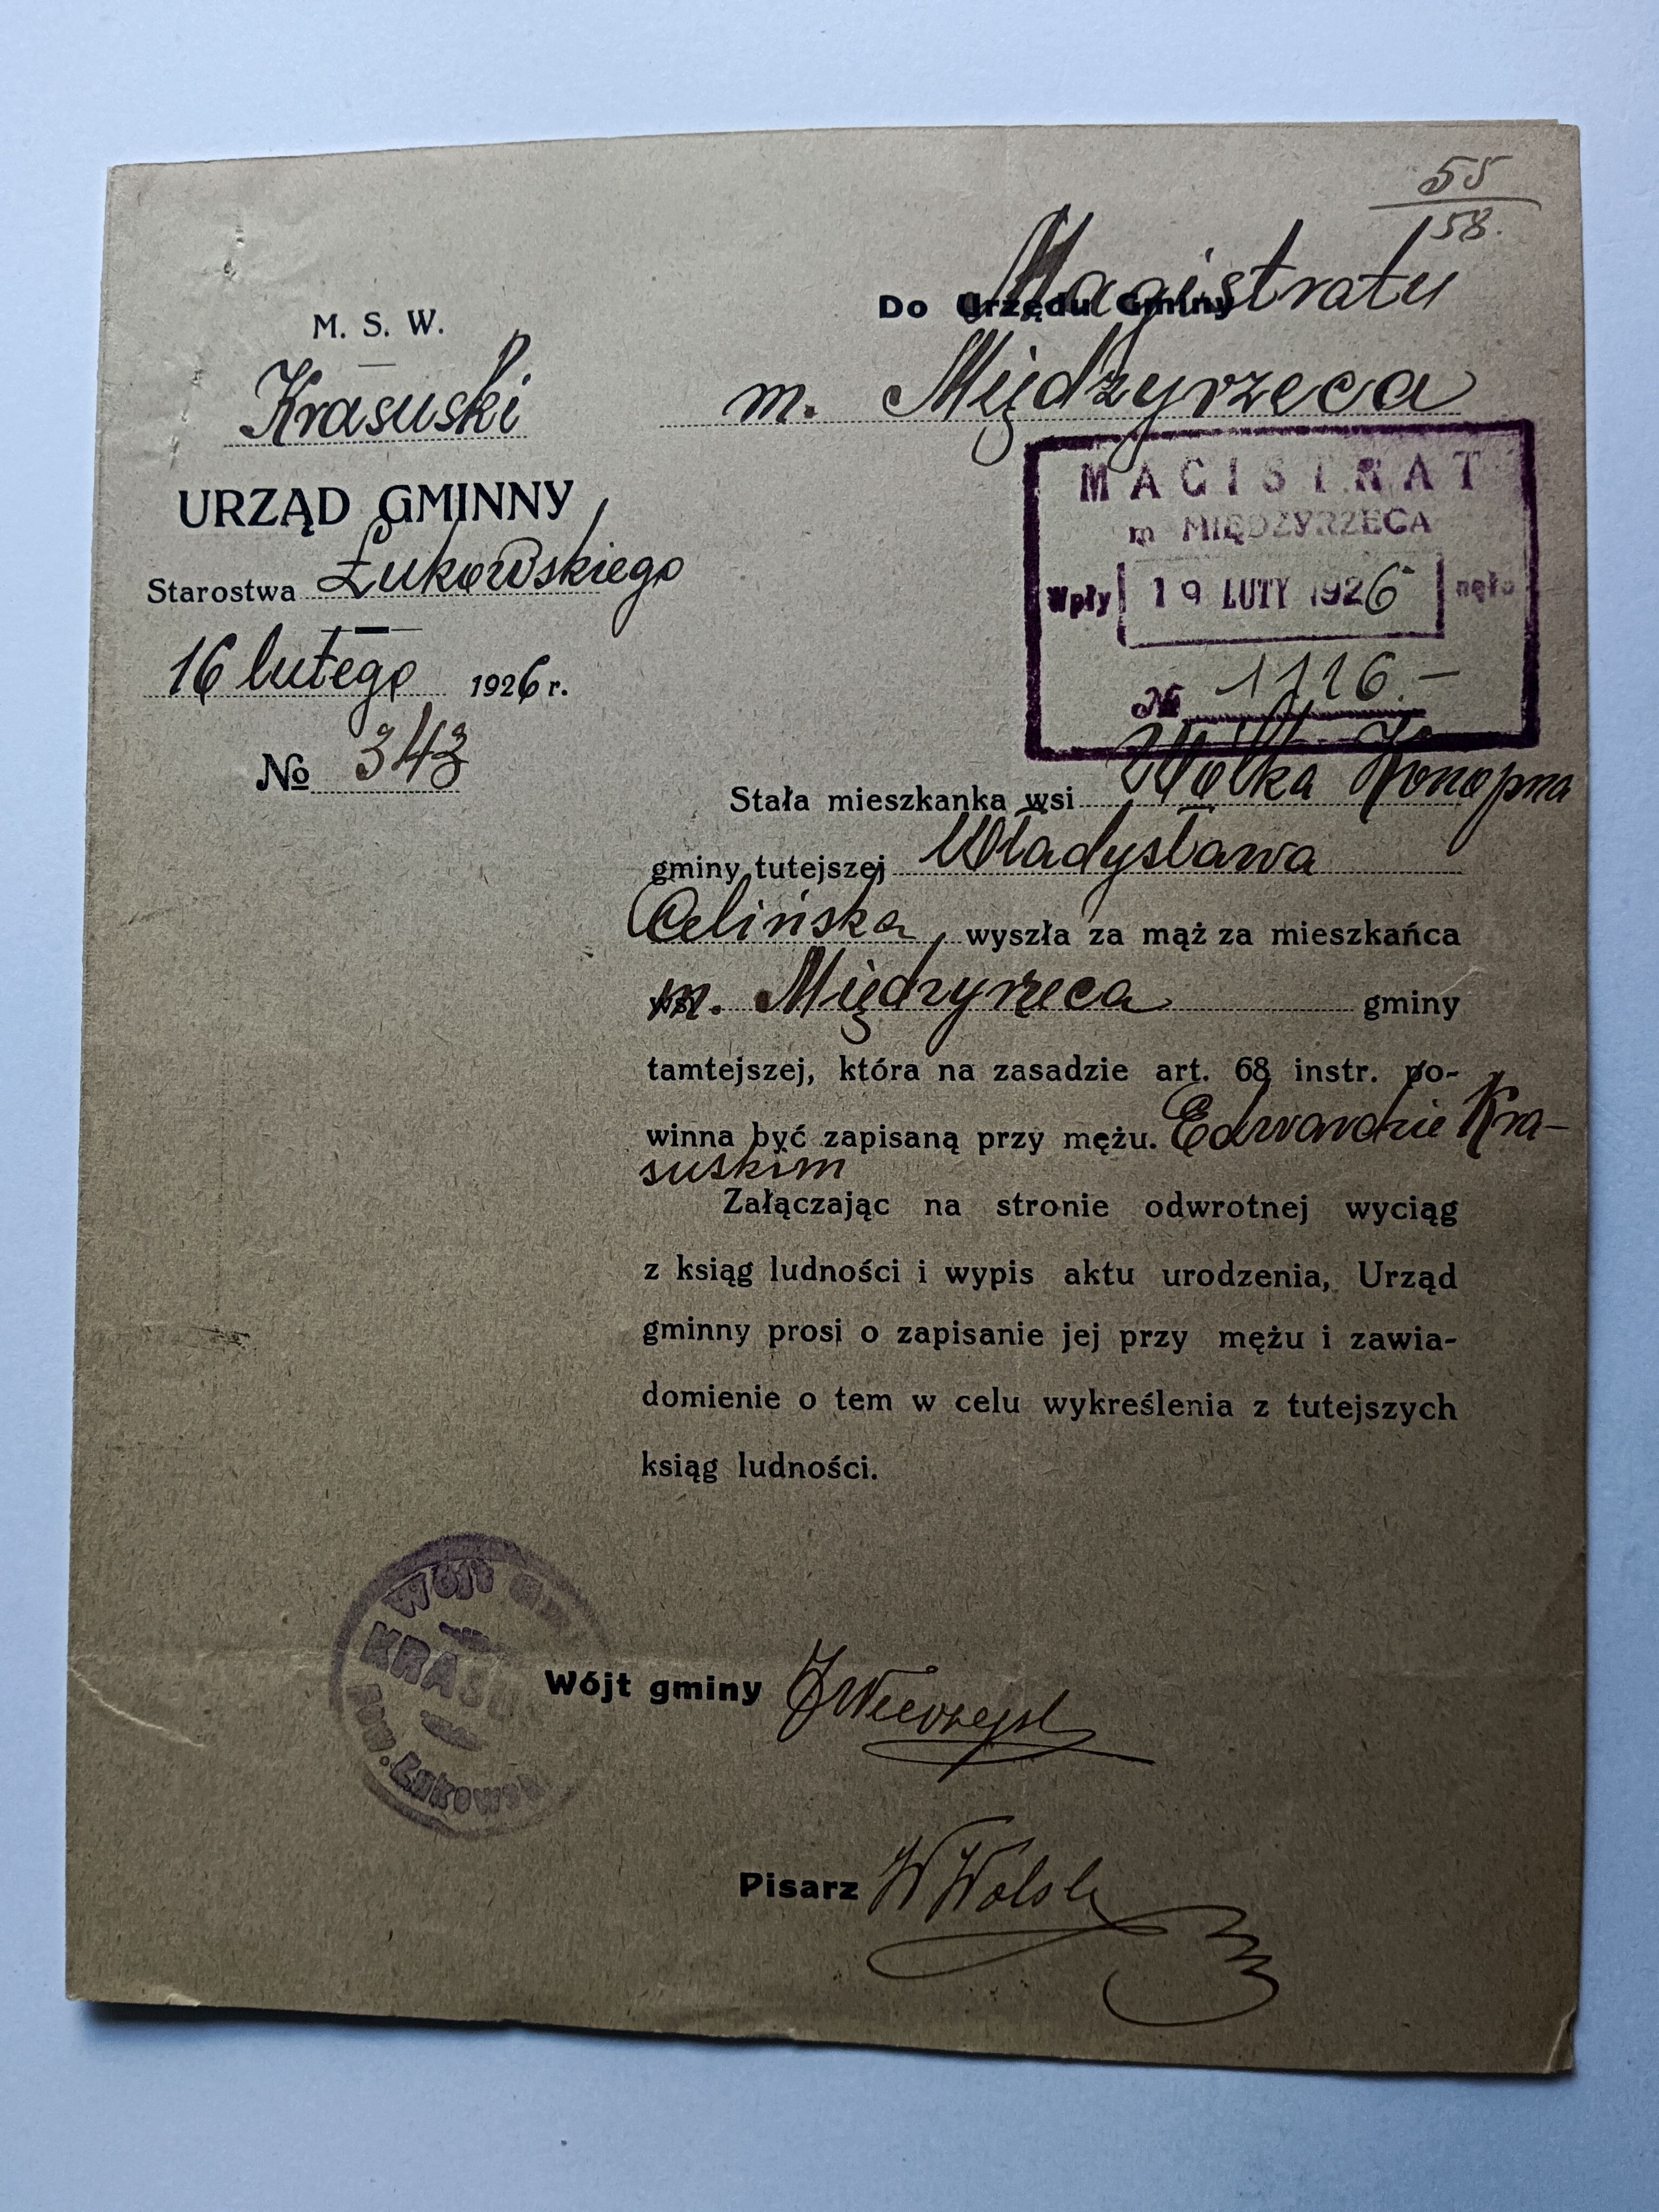 55
58.
M. S. W.
Krasuski
URZĄD GMINNY
Starostwa Łukowskiego
16 lutego 1926 r.
No 343
Do Urzędu Gminy Magistratu
m. Międzyrzeca
MAGISTRAT
m MIĘDZYRZECA
Wpły 19 LUTY 1926 nęło
No 1126.-
Stała mieszkanka wsi Wólka Konopna
gminy tutejszej Władysława
Celińska, wyszła za mąż za mieszkańca
wsi m. Międzyrzeca gminy
tamtejszej, która na zasadzie art. 68 instr. po-
winna być zapisaną przy mężu. Edwardzie Kra-
suskim
Załączając na stronie odwrotnej wyciąg
z ksiąg ludności i wypis aktu urodzenia, Urząd
gminny prosi o zapisanie jej przy mężu i zawia-
domienie o tem w celu wykreślenia z tutejszych
ksiąg ludności.
Wójt Gm
KRASU
Pow. Łukowsk
Wójt gminy
Pisarz W Wolsk